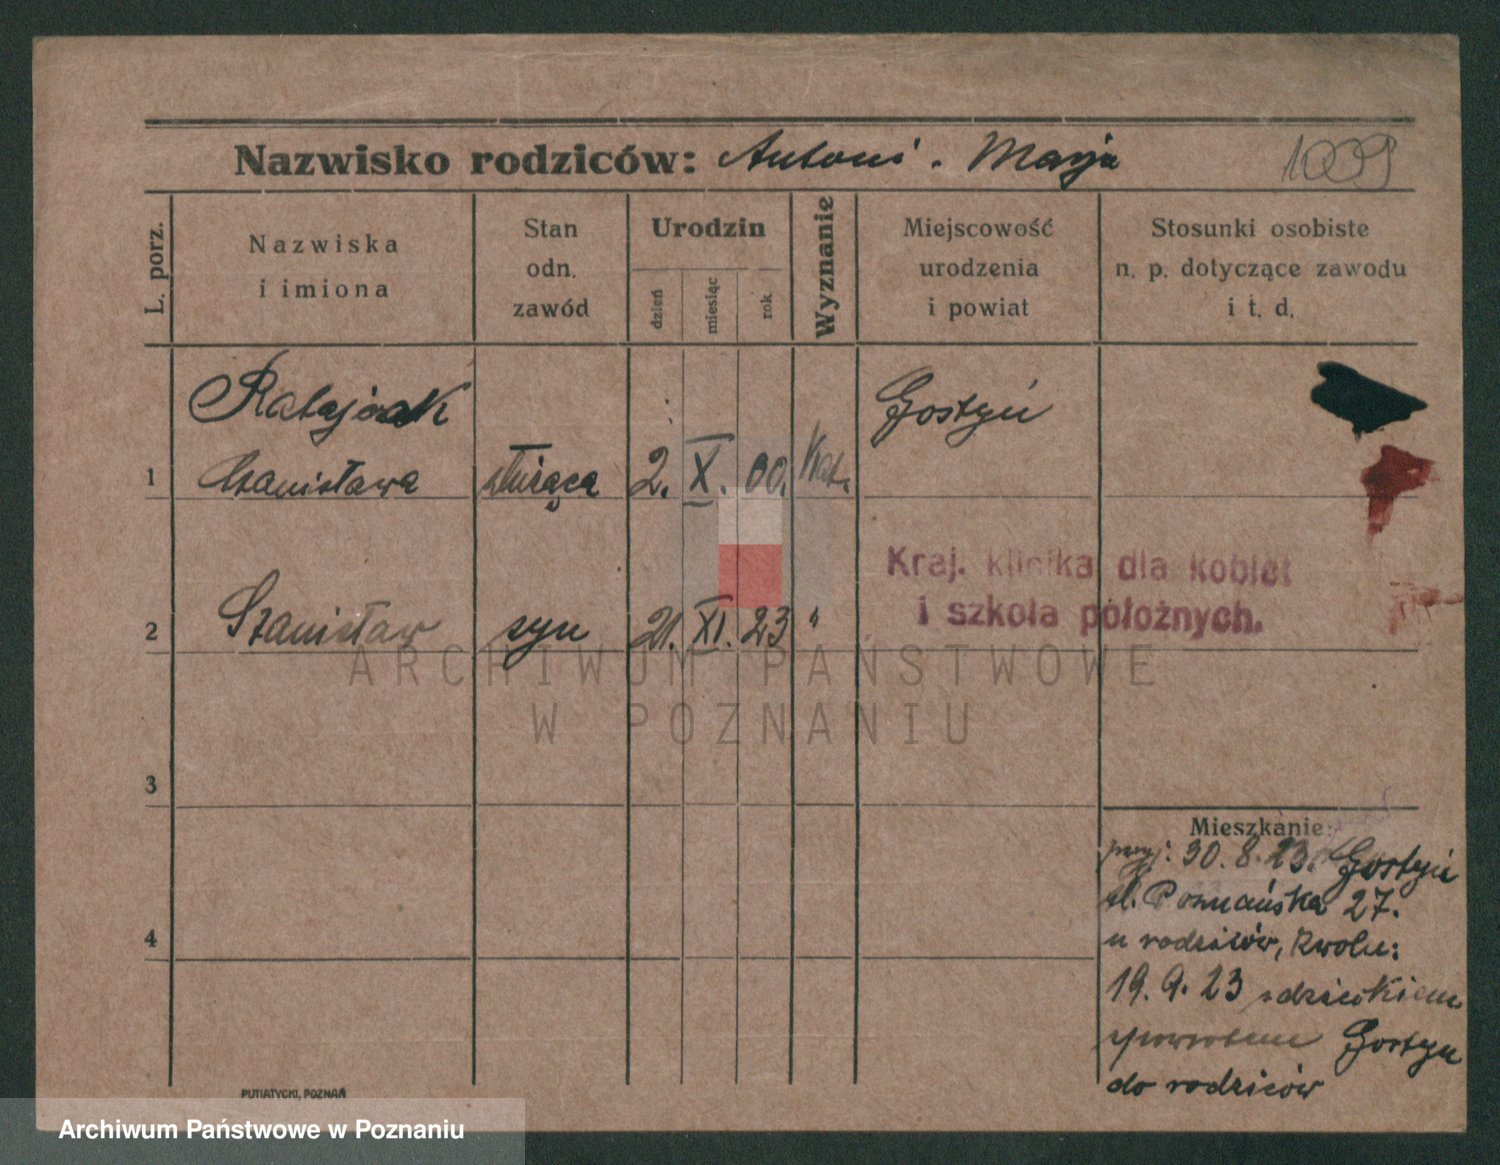 Nazwisko rodziców: Antoni. Marja
1009
L. porz.
Nazwiska
i imiona
Stan
odn.
zawód
Urodzin
dzień
miesiąc
rok
Wyznanie
Miejscowość
urodzenia
i powiat
Stosunki osobiste
n. p. dotyczące zawodu
i t. d.
Ratajczak
Gostyń
1 Stanisława służąca 2. X. 00. Kat.
Kraj. klinika dla kobiet
i szkoła położnych.
2 Stanisław syn 21. XI. 23 "
ARCHIWUM PAŃSTWOWE
W POZNANIU
3
Mieszkanie:
przyj. 30. 8. 23. Gostyń
ul. Poznańska 27.
4
u rodziców, zwoln:
19. 9. 23 z dzieckiem
spowrotem Gostyń
do rodziców
PUTIATYCKI, POZNAŃ
Archiwum Państwowe w Poznaniu